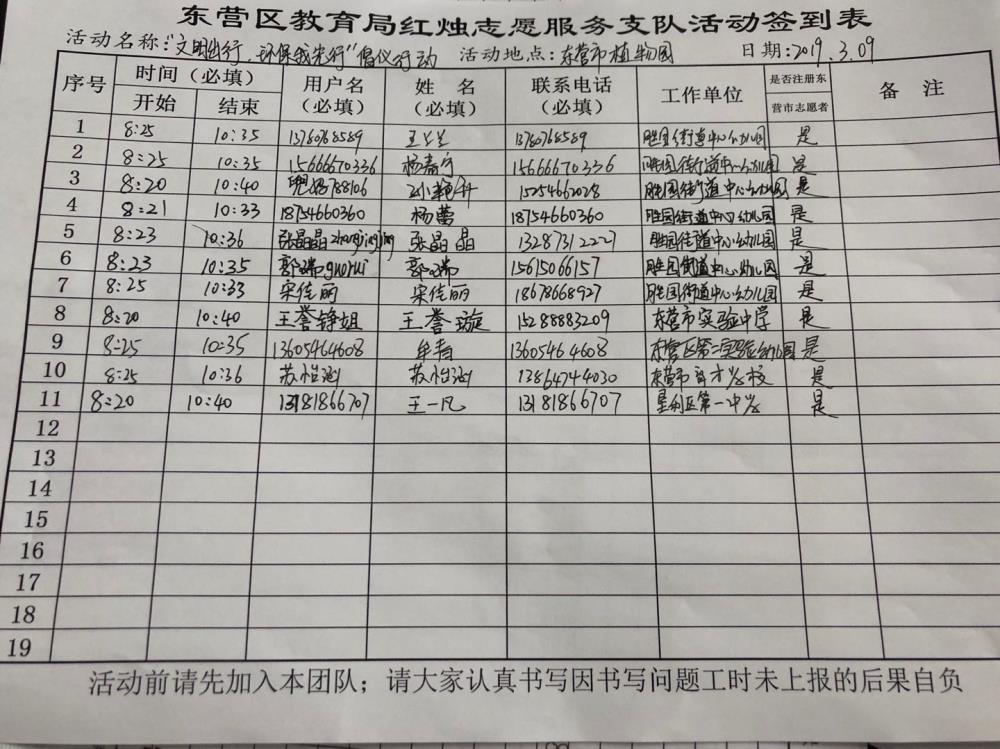 东营区教育局红烛志愿服务支队活动签到表
活动名称:"文明出行、环保我先行"倡仪行动 活动地点:东营市植物园 日期:2019.3.09
序号 时间（必填） 用户名（必填） 姓名（必填） 联系电话（必填） 工作单位 是否注册东营市志愿者 备注
开始 结束
1 8:25 10:35 13780768589 王兰兰 13780768589 胜园街道中心幼儿园 是
2 8:25 10:35 15666670336 杨春宁 15666670336 胜园街道中心幼儿园 是
3 8:20 10:40 孙艳升 15254662028 胜园街道中心幼儿园 是
4 8:21 10:33 18754660360 杨蕾 18754660360 胜园街道中心幼儿园 是
5 8:23 10:36 张晶晶zhangjingjing 张晶晶 13287312227 胜园街道中心幼儿园 是
6 8:23 10:35 郭瑞guorui 郭瑞 15615066157 胜园街道中心幼儿园 是
7 8:25 10:33 宋佳丽 宋佳丽 18678668927 胜园街道中心幼儿园 是
8 8:20 10:40 王誉铮姐 王誉璇 15288883209 东营市实验中学 是
9 8:25 10:35 13605464608 牟青 13605464608 东营区第二实验幼儿园 是
10 8:25 10:36 苏怡涵 苏怡涵 13864744030 东营市育才学校 是
11 8:20 10:40 13181866707 王一凡 13181866707 垦利区第一中学 是
12
13
14
15
16
17
18
19
活动前请先加入本团队；请大家认真书写因书写问题工时未上报的后果自负